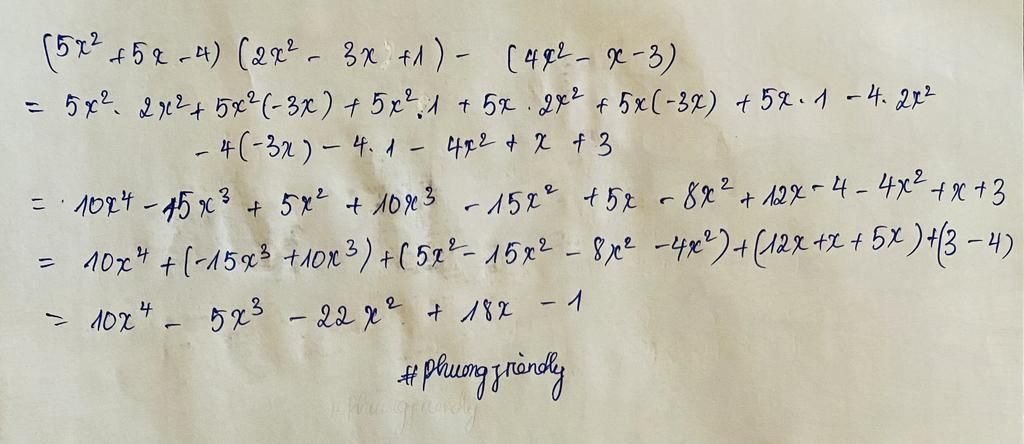 (5x² + 5x - 4) (2x² - 3x + 1) - (4x² - x - 3)
= 5x². 2x² + 5x²(-3x) + 5x².1 + 5x . 2x² + 5x(-3x) + 5x . 1 - 4. 2x²
- 4(-3x) - 4. 1 - 4x² + x + 3
= 10x⁴ - 15x³ + 5x² + 10x³ - 15x² + 5x - 8x² + 12x - 4 - 4x² + x + 3
= 10x⁴ + (-15x³ + 10x³) + (5x² - 15x² - 8x² - 4x²) + (12x + x + 5x) + (3 - 4)
= 10x⁴ - 5x³ - 22x² + 18x - 1
#phuongfriendly
#phuongfriendly